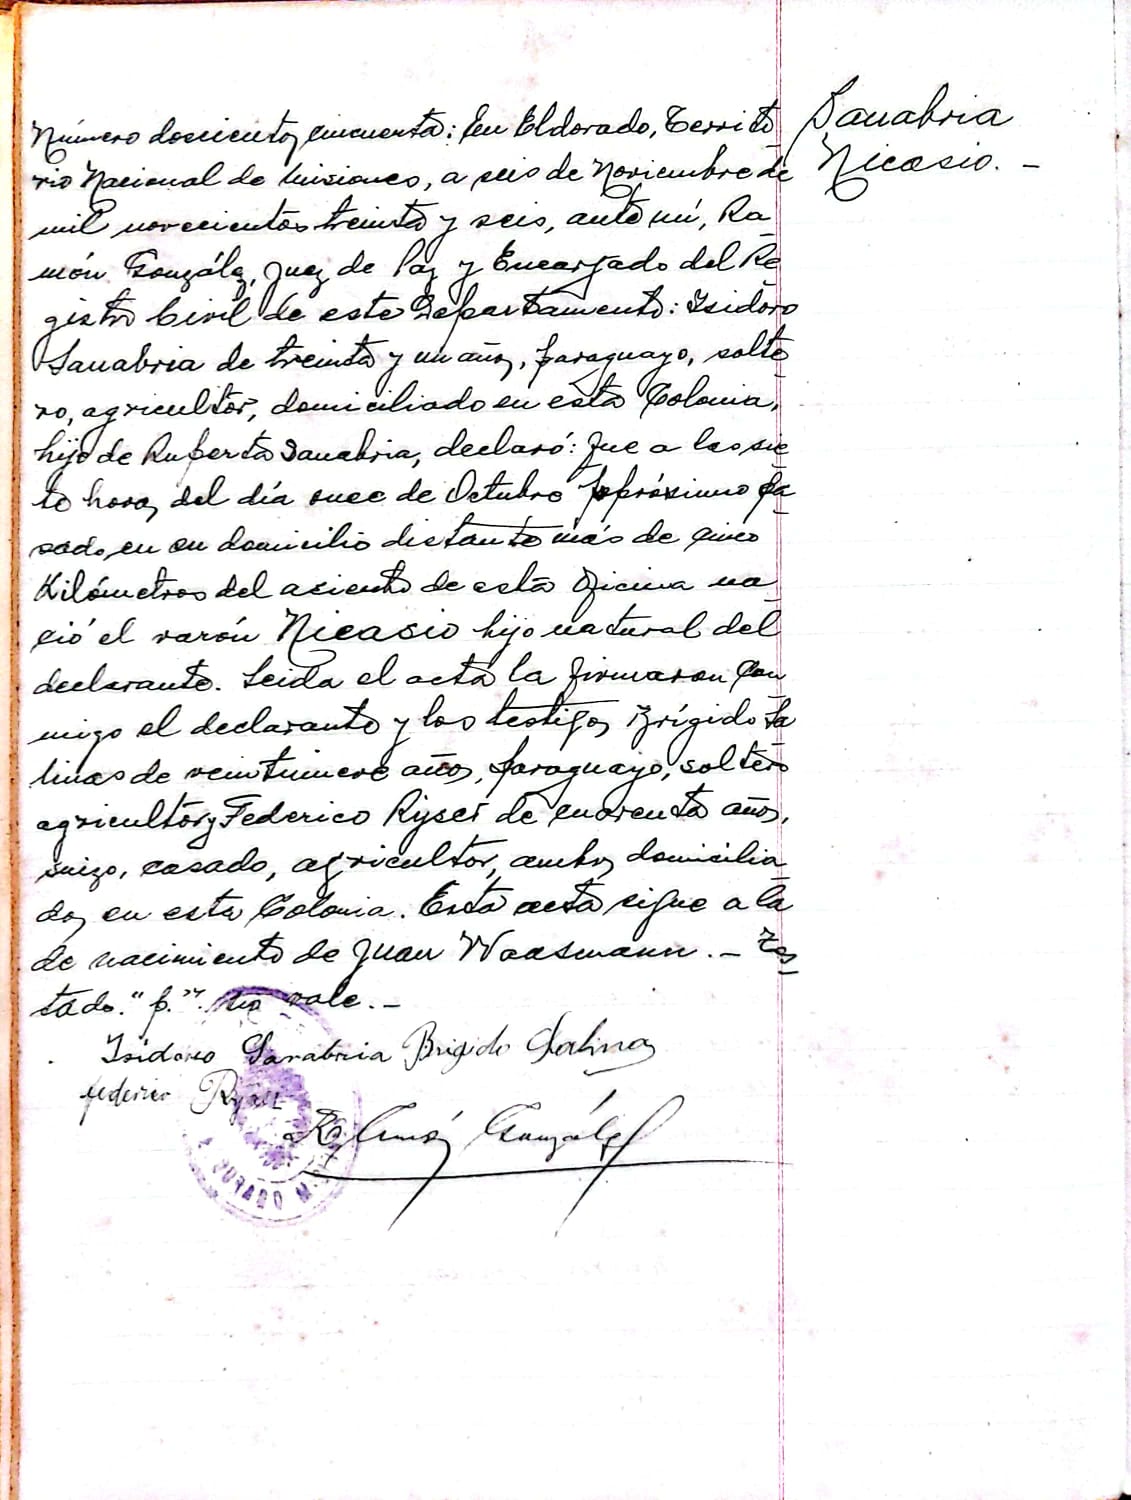 Número doscientos cincuenta: En Eldorado, Territo
rio Nacional de Misiones, a seis de Noviembre de
mil novecientos treinta y seis, ante mí, Ra
món González, Juez de Paz y Encargado del Re
gistro Civil de este Departamento: Isidoro
Sanabria de treinta y un años, paraguayo, solte
ro, agricultor, domiciliado en esta Colonia,
hijo de Ruperta Sanabria, declaró: Que a las sie
te horas del día once de Octubre p próximo pa
sado, en su domicilio distante más de cinco
Kilómetros del asiento de esta Oficina na
ció el varón Nicasio hijo natural del
declarante. Leida el acta la firmaron con
migo el declarante y los testigos Brígido Sa
linas de veintinueve años, paraguayo, soltero
agricultor y Federico Ryser de cuarenta años,
suizo, casado, agricultor, ambos domicilia
dos en esta Colonia. Esta acta sigue a la
de nacimiento de Juan Waasmann. — Tes
tado. "p.". No vale. —
Isidoro Sanabria Brigido Salinas
federico Ryser
Ramón González
Sanabria
Nicasio. —